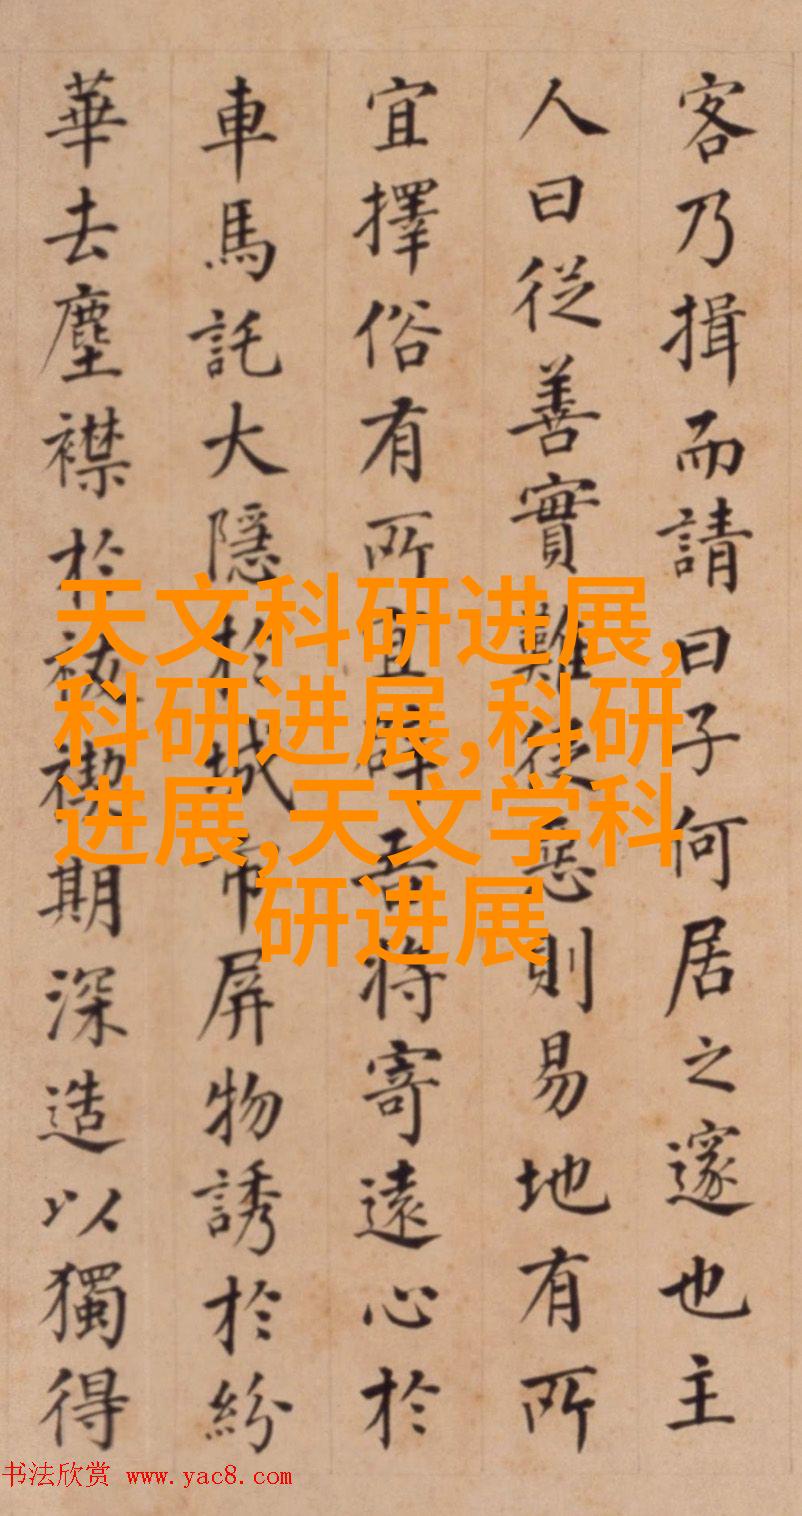 客乃揖而請曰子何居之邃也主
人曰從善實難從惡則易地有所
宜擇俗有所宜吾將寄遠心於
車馬託大隱於城市屏物誘於紛
華去塵襟於祓禊期深造以獨得
天文科研进展,
科研进展,科研
进展,天文学科
研进展
书法欣赏 www.yac8.com